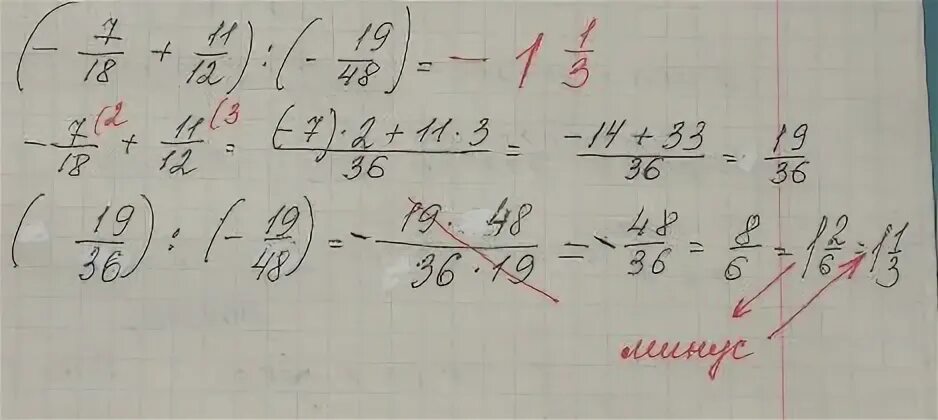 (- 7/18 + 11/12) : (- 19/48) = - 1 1/3
- 7/18 (2 + 11/12 (3 = (-7)·2+11·3/36 = -14+33/36 = 19/36
( 19/36) : (- 19/48) = - 19· 48/36·19 = - 48/36 = 8/6 = 1 2/6 = 1 1/3
минус